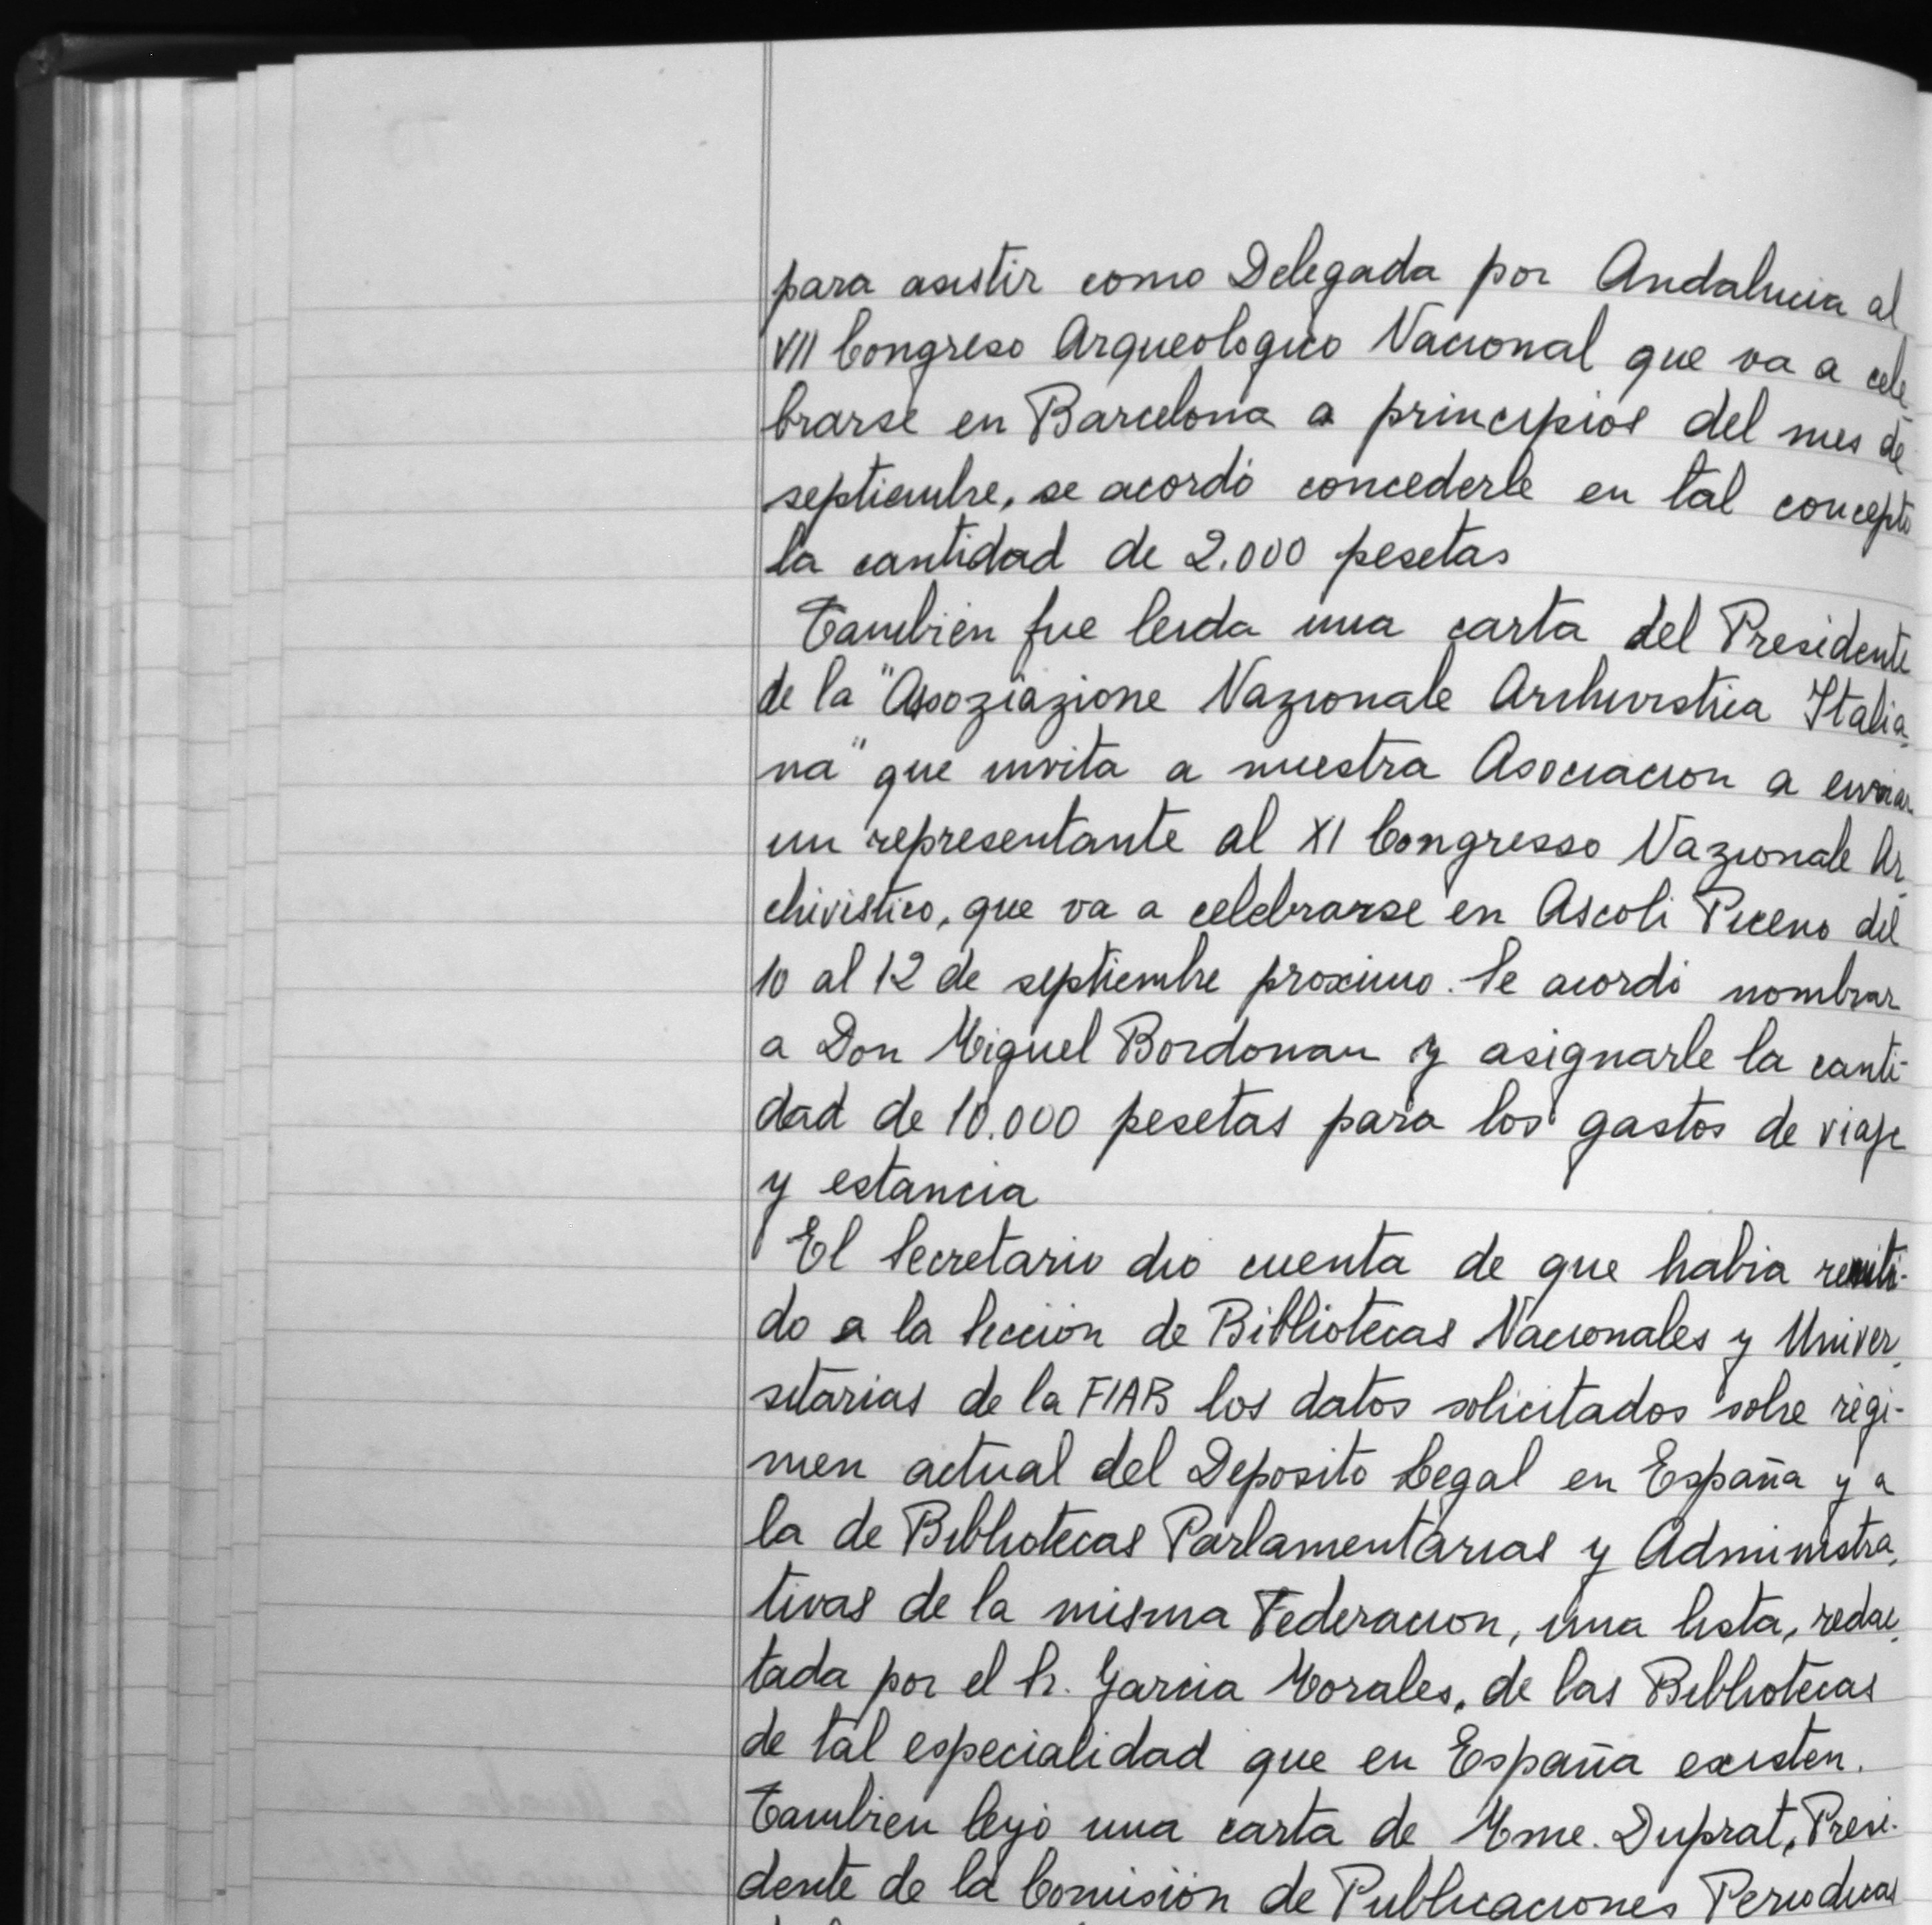 para asistir como Delegada por Andalucia al
VII Congreso Arqueologico Nacional que va a cele-
brarse en Barcelona a principios del mes de
septiembre, se acordó concederle en tal concepto
la cantidad de 2.000 pesetas
También fue leida una carta del Presidente
de la "Asoziazione Nazionale Archivistica Italia-
na" que invita a nuestra Asociacion a enviar
un representante al XI Congresso Nazionale Ar-
chivistico, que va a celebrarse en Ascoli Piceno del
10 al 12 de septiembre proximo. Se acordó nombrar
a Don Miguel Bordonau y asignarle la canti-
dad de 10.000 pesetas para los gastos de viaje
y estancia
El Secretario dio cuenta de que habia remiti-
do a la Sección de Bibliotecas Nacionales y Univer-
sitarias de la FIAB los datos solicitados sobre régi-
men actual del Deposito Legal en España y a
la de Bibliotecas Parlamentarias y Administra-
tivas de la misma Federacion, una lista, redac-
tada por el Sr. Garcia Morales, de las Bibliotecas
de tal especialidad que en España existen.
Tambien leyó una carta de Mme. Duprat, Presi-
dente de la Comisión de Publicaciones Periodicas